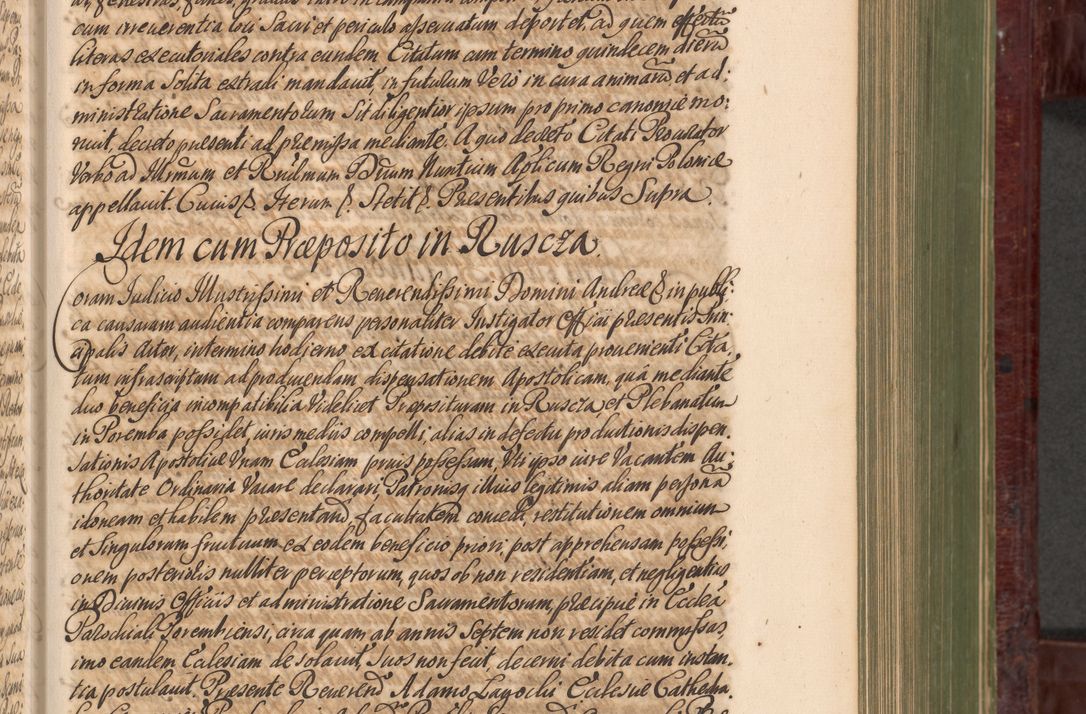 cum irreuerentia loci Sacri et periculo asseruatum deportet, ad quem effectũ
literas executoriales contra eundem Citatum cum termino quindecem dierũ
in forma Solita extradi mandauit, in futurum Vero in cura animarũ et ad:
ministratione Sacramentorum Sit diligentior ipsum pro primo canonice mo:
nuit, decreto presenti ad premissa mediante. A quo decreto Citati Procurator
Verbo ad Illrmum et Rndmum Dnum Nuntium Aplicum Regni Poloniæ
appellauit. Cuius &. Iterum &. Stetit &. Presentibus quibus Supra.
Idem cum Præposito in Ruscza.
Coram Judicio Illustrissimi et Reuerendissimi Domini Andreæ & in publi,
ca causarum audientia comparens personaliter Instigator Officii presentis Prin,
cipalis Actor, in termino hodierno ex citatione debite executa prouenienti Cita,
tum infrascriptum ad producendam dispensationem Apostolicam, qua mediante
duo beneficia incompatibilia Videlicet Præposituram in Ruscza et Plebanatum
in Poremba possidet, iuris medijs compelli, alias in defectu productionis dispen,
sationis Apostolicæ Vnam Ecclesiam prius possessam, Vti ipso iure Vacantem Au:
thoritate Ordinaria Vacare declarari, Patronisq illius legitimis aliam personã
idoneam et habilem presentand facultatem concedi, restitutionem omnium
et Singulorum fructuum ex eodem beneficio priori, post apprehensam possessi,
onem posterioris nulliter perceptorum, quos ob non residentiam, et negligentias
in Diuinis Officiis et administratione Sacramentorum, præcipue in Eccleã
Parochiali Porembensi, circa quam ab annis Septem non residet commissas,
imo eandem Ecclesiam desolauit, Suos non fecit, decerni debita cum instan,
tia postulauit. Presente Reuerend Adamo Lagocki Ecclesiæ Cathedra.